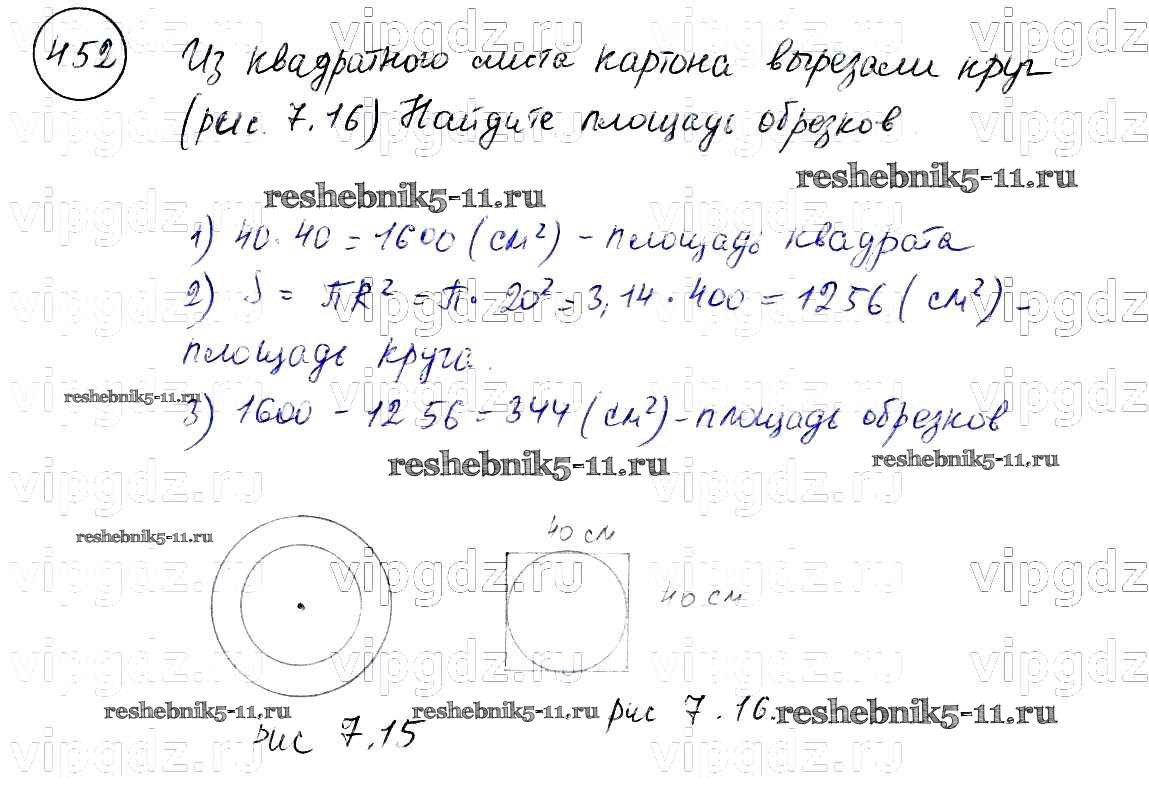 452 Из квадратного листа картона вырезали круг
(рис. 7.16) Найдите площадь обрезков
reshebnik5-11.ru reshebnik5-11.ru
1) 40 · 40 = 1600 (см²) - площадь квадрата
2) S = πR² = π · 20² = 3,14 · 400 = 1256 (см²) -
площадь круга.
reshebnik5-11.ru
3) 1600 - 1256 = 344 (см²) - площадь обрезков
reshebnik5-11.ru reshebnik5-11.ru
reshebnik5-11.ru
40 см
40 см
reshebnik5-11.ru reshebnik5-11.ru
рис 7.15 рис 7.16. reshebnik5-11.ru
vipgdz.ru